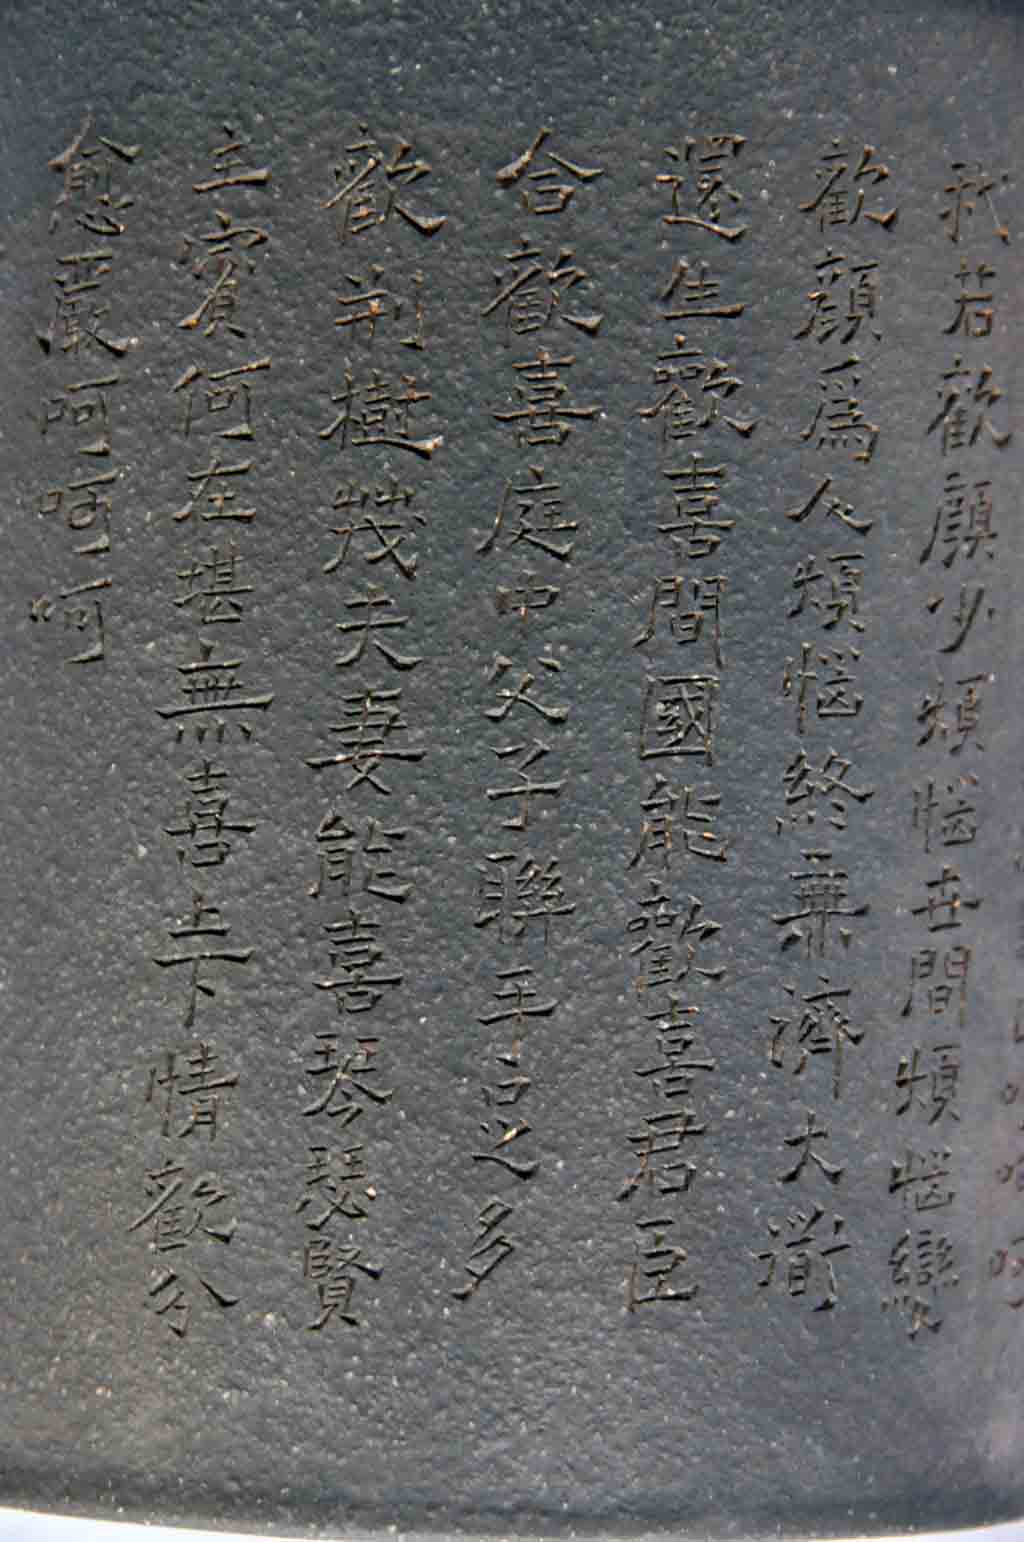 我若歡顏少煩惱世間煩惱變
歡顏為人煩惱終無濟大道
還生歡喜間國能歡喜君臣
合歡喜庭中父子聯平占之多
歡荊樹茂夫妻能喜琴瑟賢
主賓何在堪無喜上下情歡分
愈嚴呵呵呵